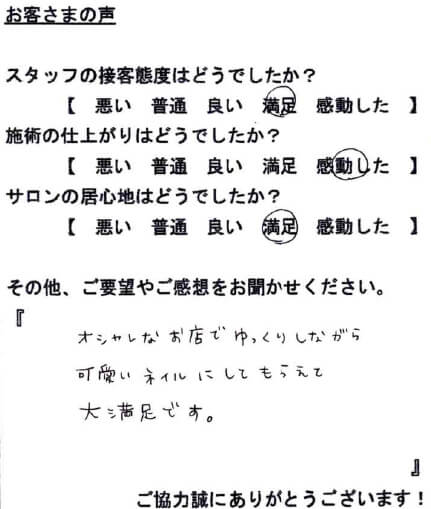 お客さまの声
スタッフの接客態度はどうでしたか？
【 悪い 普通 良い 満足 感動した 】
施術の仕上がりはどうでしたか？
【 悪い 普通 良い 満足 感動した 】
サロンの居心地はどうでしたか？
【 悪い 普通 良い 満足 感動した 】
その他、ご要望やご感想をお聞かせください。
『
オシャレなお店でゆっくりしながら
可愛いネイルにしてもらえて
大満足です。
』
ご協力誠にありがとうございます！